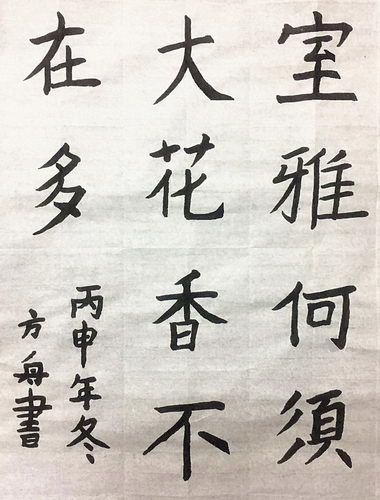 室雅何須
大花香不
在多
丙申年冬
方舟書